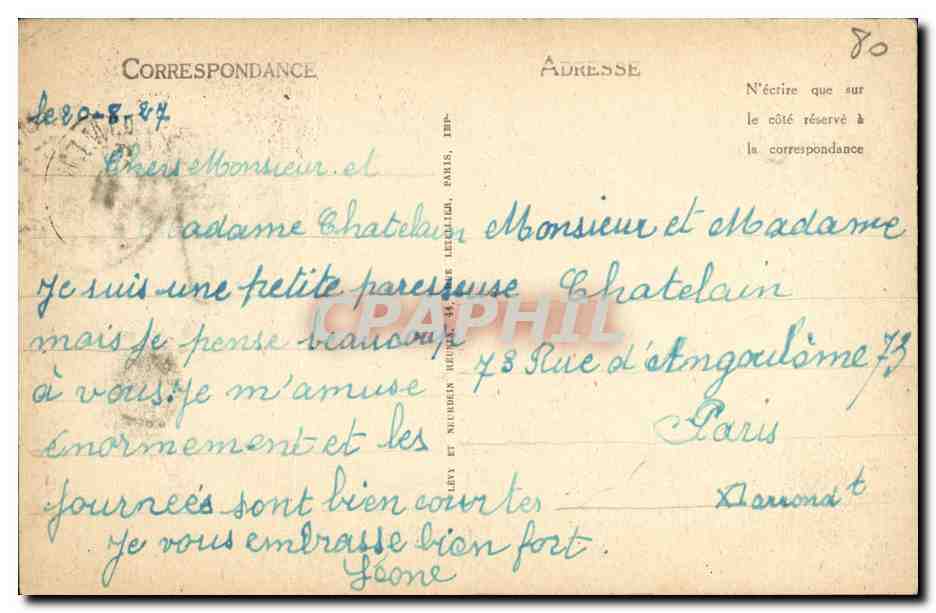 80
CORRESPONDANCE
ADRESSE
N'écrire que sur
le côté réservé à
la correspondance
le 20-8-27
Chers Monsieur et
Madame Chatelain
Je suis une petite paresseuse
mais je pense beaucoup
à vous. Je m'amuse
énormement et les
journeés sont bien courtes
Je vous embrasse bien fort.
Léone
LÉVY ET NEURDEIN RÉUNIS, 44, RUE LETELLIER, PARIS, IMP.
Monsieur et Madame
Chatelain
73 Rue d'Angoulême 73
Paris
XI arrond t
CPAPHIL